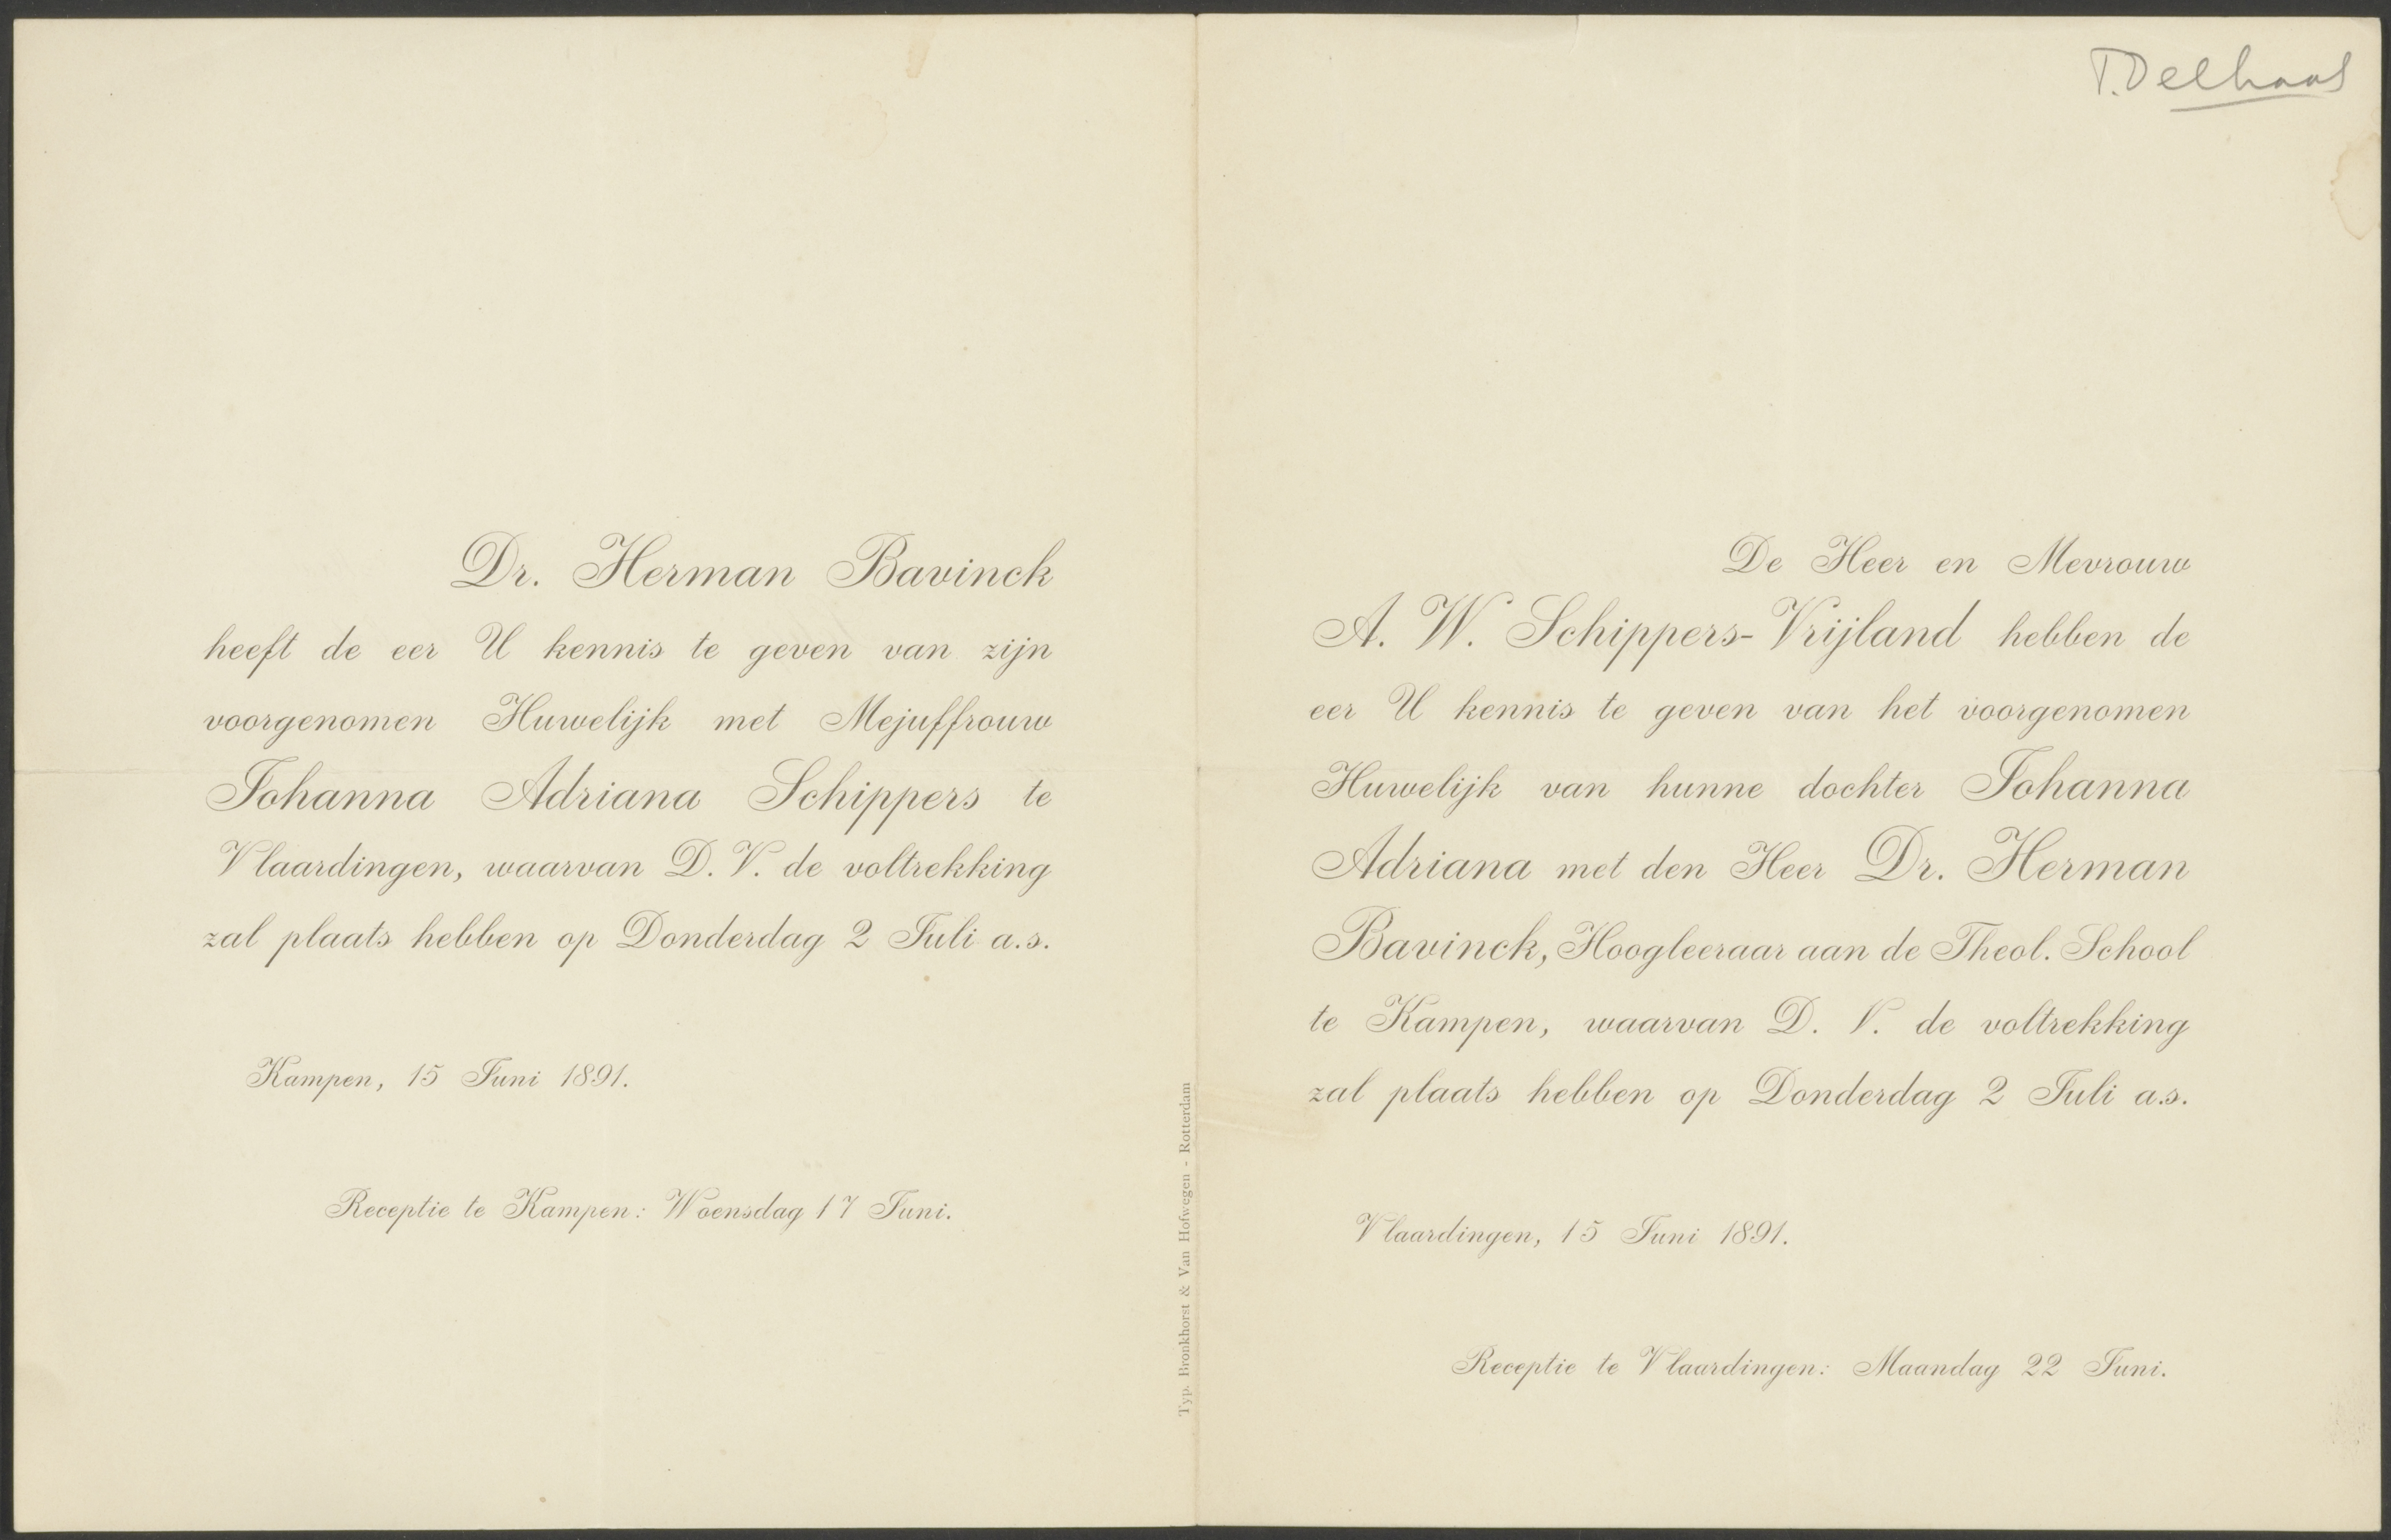 Dr. Herman Bavinck
heeft de eer U kennis te geven van zijn
voorgenomen Huwelijk met Mejuffrouw
Johanna Adriana Schippers te
Vlaardingen, waarvan D. V. de voltrekking
zal plaats hebben op Donderdag 2 Juli a.s.
Kampen, 15 Juni 1891.
Receptie te Kampen: Woensdag 17 Juni.
Typ. Bronkhorst & Van Hofwegen - Rotterdam
T. Delhaas
De Heer en Mevrouw
A. W. Schippers-Vrijland hebben de
eer U kennis te geven van het voorgenomen
Huwelijk van hunne dochter Johanna
Adriana met den Heer Dr. Herman
Bavinck, Hoogleeraar aan de Theol. School
te Kampen, waarvan D. V. de voltrekking
zal plaats hebben op Donderdag 2 Juli a.s.
Vlaardingen, 15 Juni 1891.
Receptie te Vlaardingen: Maandag 22 Juni.